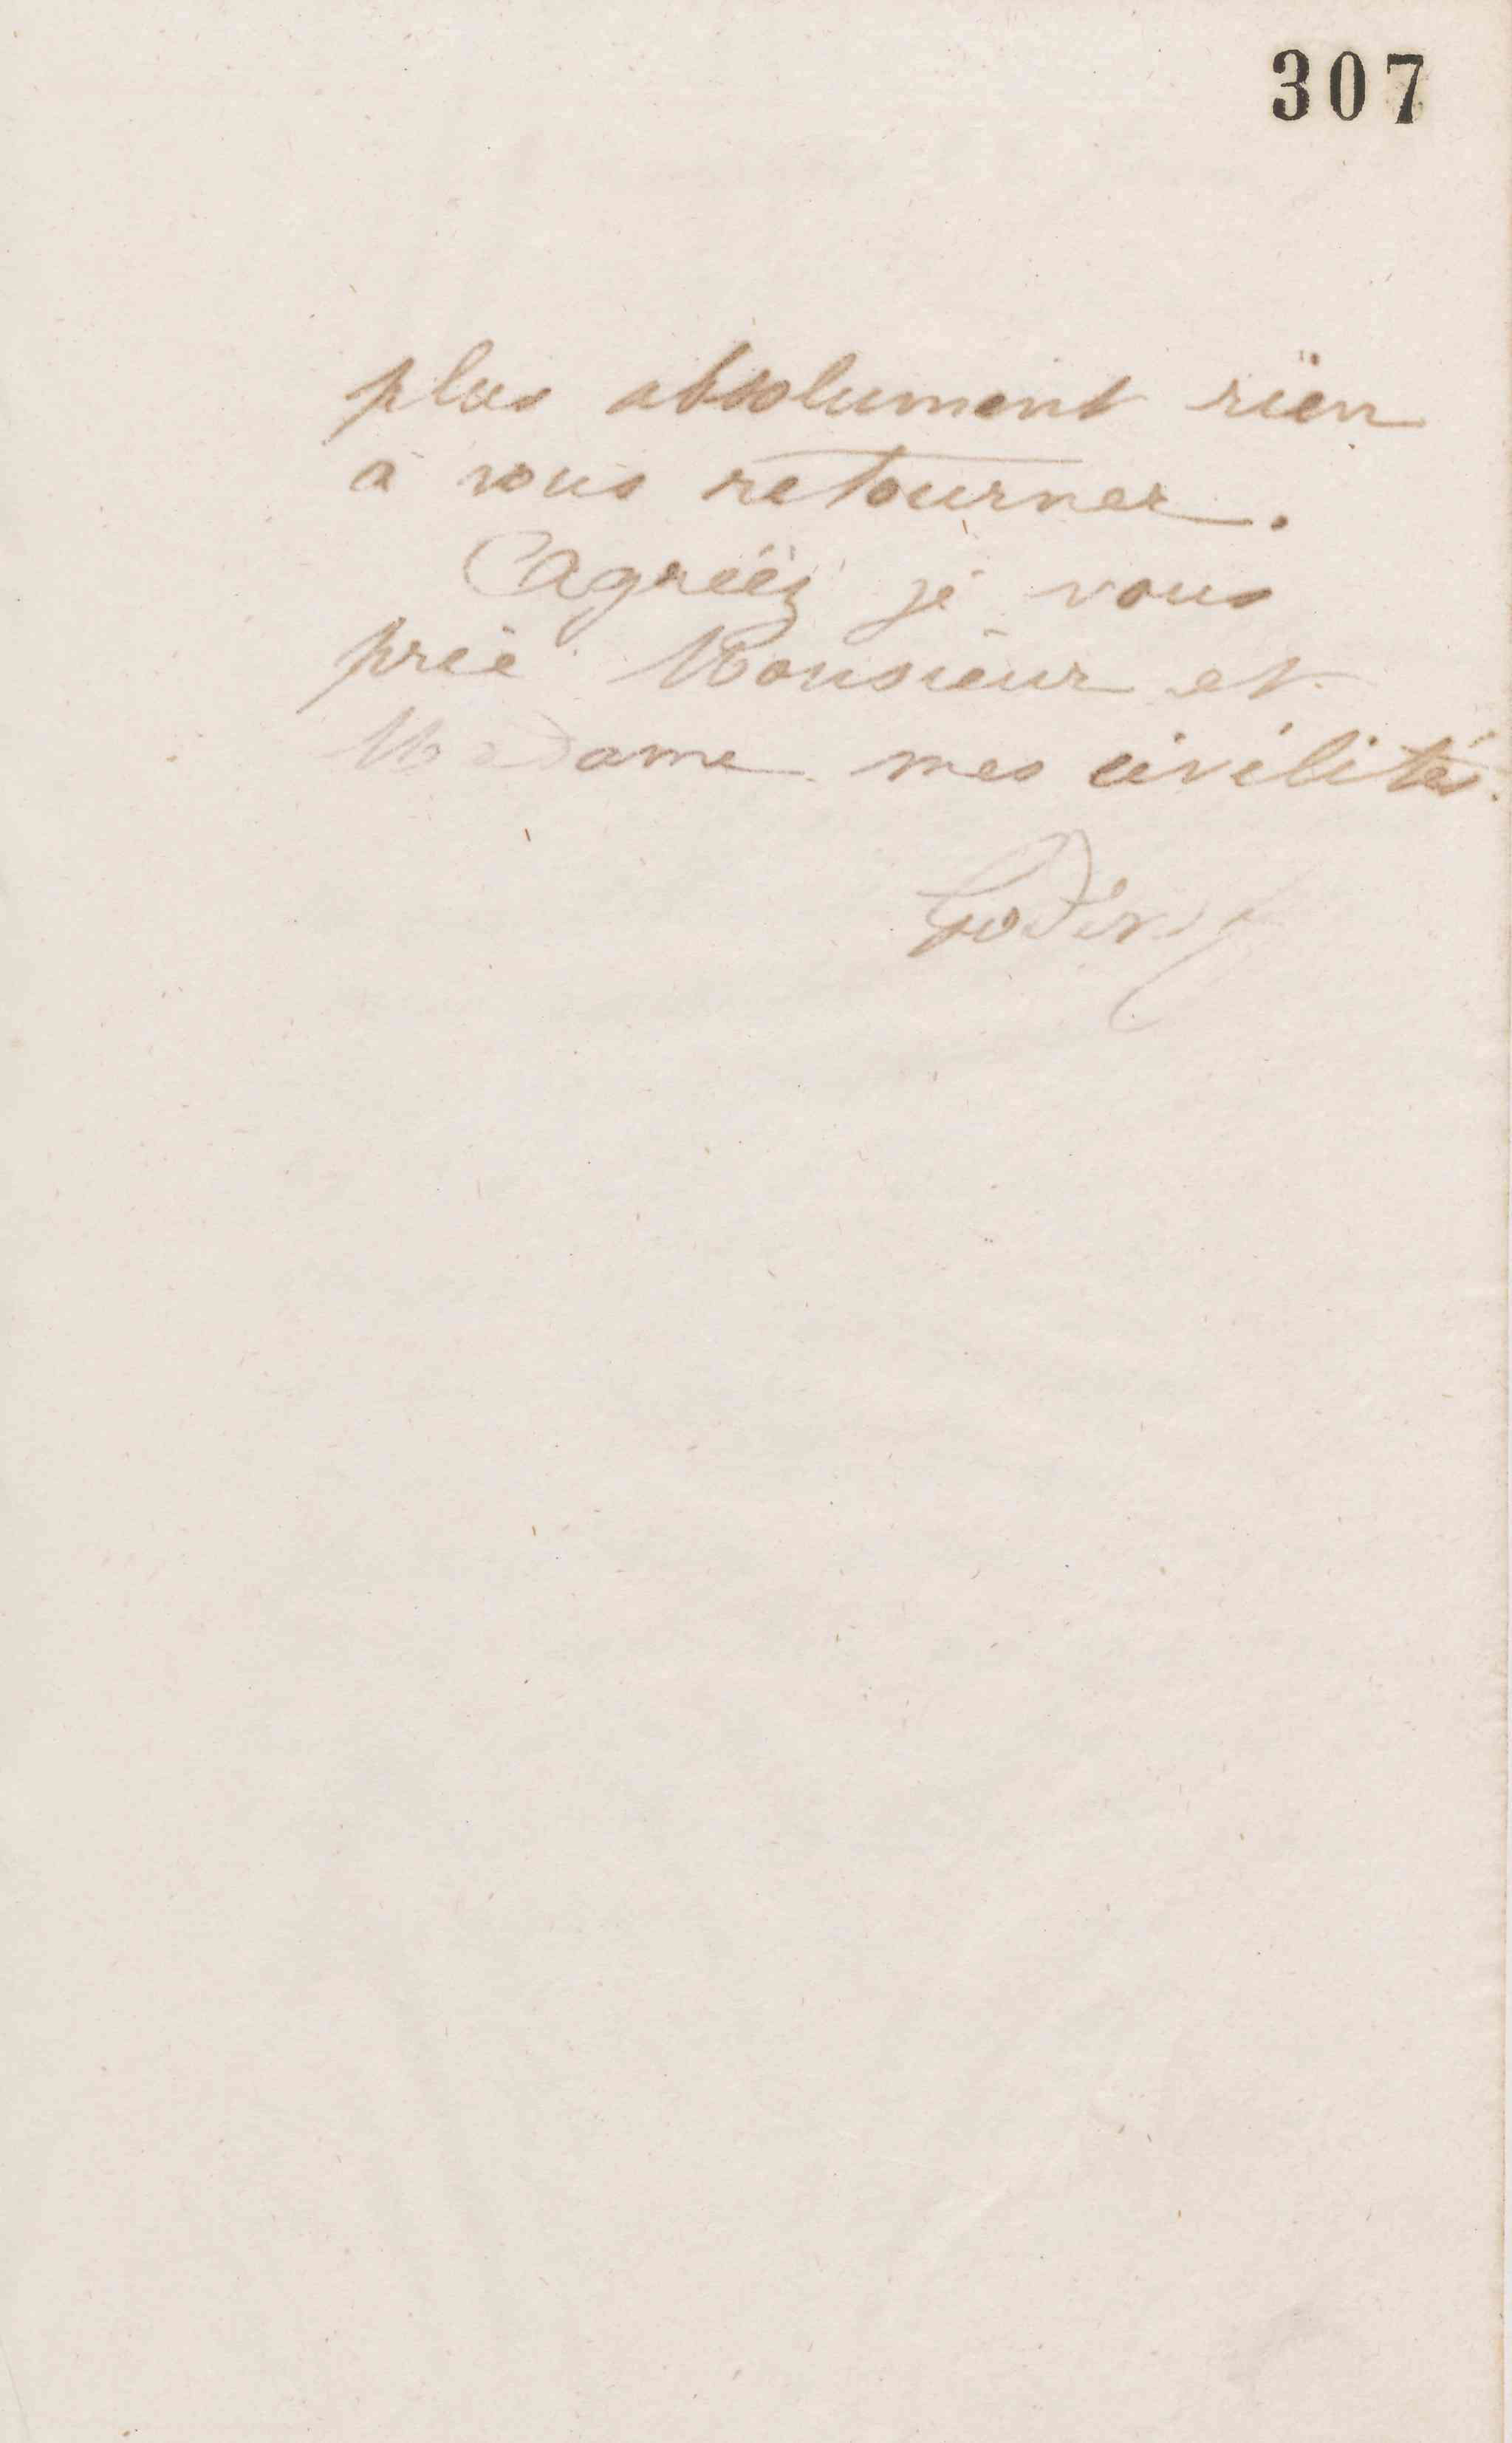 307
plus absolument rien
à vous retourner.
Agréez je vous
prie Monsieur et
Madame mes civilités.
Godin